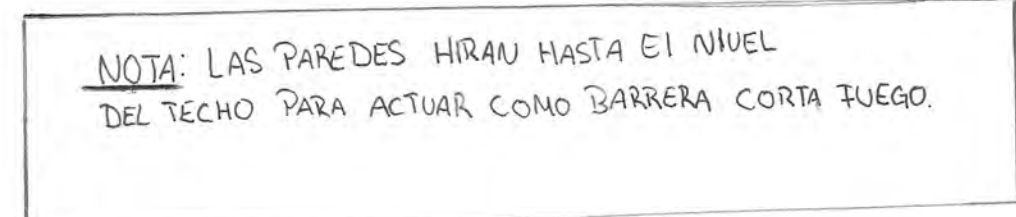 NOTA: LAS PAREDES HIRAN HASTA El NIVEL
DEL TECHO PARA ACTUAR COMO BARRERA CORTA FUEGO.